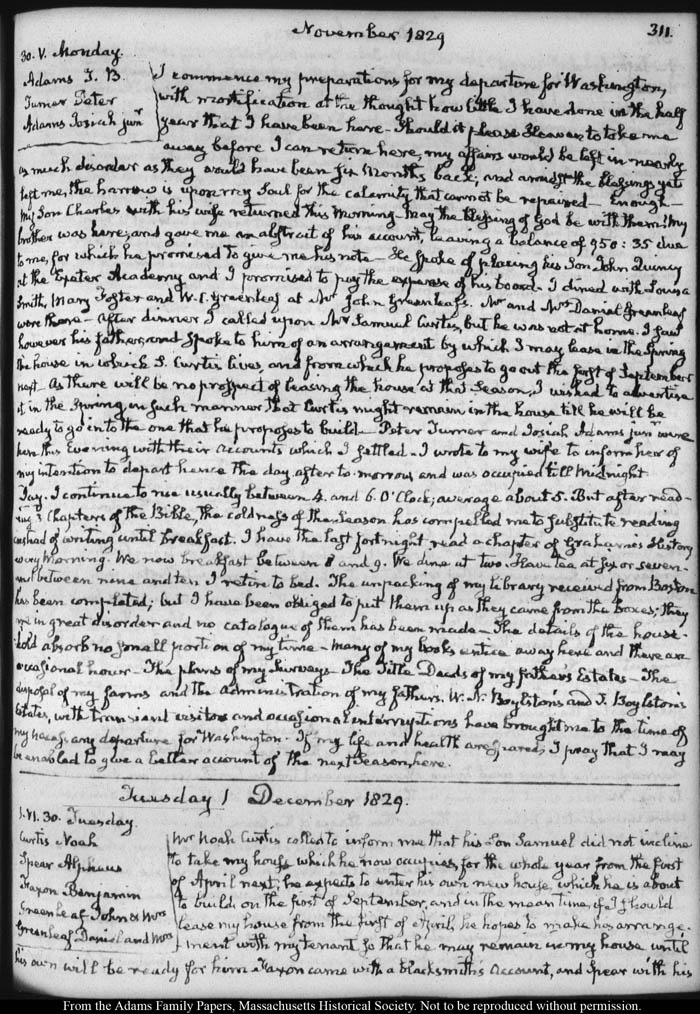 November 1829
311.
30. V. Monday.
Adams T. B.
Turner Peter
Adams Josiah junr
I commence my preparations for my departure for Washington,
with mortification at the thought how little I have done in the half
year that I have been here - Should it please Heaven to take me
away before I can return here, my affairs would be left in nearly
as much disorder as they would have been six Months back; and amidst the blessings yet
left me, the harrow is upon my Soul for the calamity that cannot be repaired - Enough -
My Son Charles with his wife returned this Morning - May the blessing of God be with them! My
brother was here, and gave me an abstract of his account, leaving a balance of 950:35 due
to me, for which he promised to give me his note - He spoke of placing his Son John Quincy
at the Exeter Academy and I promised to pay the expense of his board - I dined with Louisa
Smith, Mary Foster and W. C. Greenleaf at Mr John Greenleaf's. Mr and Mrs Daniel Greenleaf
were there - After dinner I called upon Mr Samuel Curtis, but he was not at home. I saw
however his father, and spoke to him of an arrangement by which I may lease in the Spring
the house in which S. Curtis lives, and from which he proposes to go out the first of September
next. As there will be no prospect of leasing the house at that Season, I wished to advertise
it in the Spring in such manner that Curtis might remain in the house till he will be
ready to go into the one that he proposes to build - Peter Turner and Josiah Adams junr were
here this Evening with their accounts which I settled - I wrote to my wife to inform her of
my intention to depart hence the day after to-morrow, and was occupied till Midnight
Day. I continue to rise usually between 4. and 6. O'Clock; average about 5. But after read-
ing 3 Chapters of the Bible, the coldness of the Season has compelled me to substitute reading
instead of writing until breakfast. I have the last fortnight read a chapter of Graham's History
every Morning. We now breakfast between 8 and 9. We dine at two. Have tea at six or seven -
and between nine and ten I retire to bed. The unpacking of my Library received from Boston
has been completed; but I have been obliged to put them up as they came from the boxes; they
are in great disorder and no catalogue of them has been made - The details of the house-
hold absorb no small portion of my time - Many of my books entice away here and there an
occasional hour - The plans of my Surveys - The Title Deeds of my fathers Estates - The
disposal of my farms and the Administration of my fathers, W. N. Boylston's and T. Boylston's
Estates, with transient visitors and occasional interruptions have brought me to the time of
my necessary departure for Washington - If my life and health are spared, I pray that I may
be enabled to give a better account of the next Season here.
Tuesday 1 December 1829.
1. VI. 30. Tuesday.
Curtis Noah
Spear Alpheus
Faxon Benjamin
Greenleaf John & Mrs
Greenleaf Daniel and Mrs
Mr Noah Curtis called to inform me that his Son Samuel did not incline
to take my house which he now occupies, for the whole year from the first
of April next; he expects to enter his own new house, which he is about
to build, on the first of September, and in the mean time, if I should
lease my house from the first of April, he hopes to make his arrange-
ment with my tenant so that he may remain in my house until
his own will be ready for him - Faxon came with a blacksmith's account, and Spear with his
From the Adams Family Papers, Massachusetts Historical Society. Not to be reproduced without permission.